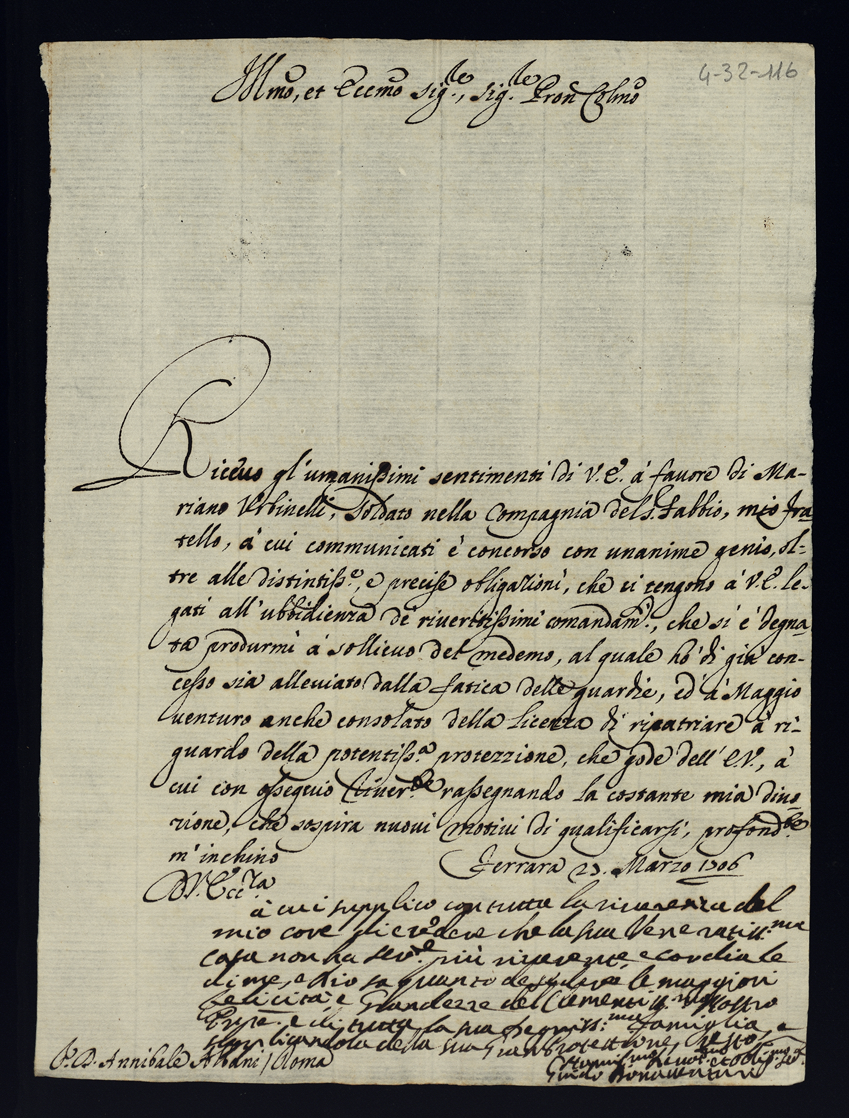 4-32-116
Illmo, et Eccmo Sig.re, Sig.re Pron Colmo
Riceuo gl'umanissimi sentimenti di V.E. á fauore di Ma-
riano Vrbinelli, Soldato nella Compagnia del S. Fabbio, mio fra-
tello, á cui communicati é concorso con unanime genio, ol-
tre alle distintiss.e, e precise obligazioni, che ci tengono á V.E. le-
gati all'ubbidienza de riueritissimi comandam.ti, che si é degna-
ta produrmi á sollieuo del medemo, al quale hó di giá con-
cesso sia alleuiato dalla fatica delle guardie, ed á Maggio
uenturo anche consolato della licenza di ripatriare á ri-
guardo della potentiss.a protezzione, che gode dell'E.V., á
cui con ossequio riuer.le rassegnando la costante mia diuo-
zione, che sospira nuoui motiui di qualificarsi, profond.te
m'inchino Ferrara 23. Marzo 1706
D.V. Ecc.za
á cui supplico con tutta la riuerenza del
mio core di credere che la sua Veneratiss.ma
casa non ha ser.e più riuerente, e cordiale
di me, e Dio sa quanto desidero le maggiori
felicità, e Grandezze del Clementiss.mo Nostro
Prpe. e di tutta la sua Degniss.ma famiglia, e
supplicandola della sua Gran Protettione, resto
P. D. Annibale Albani / Roma
Humiliss.mo Deuot.mo et Oblig.mo Se.r
Guido Bonauenturi